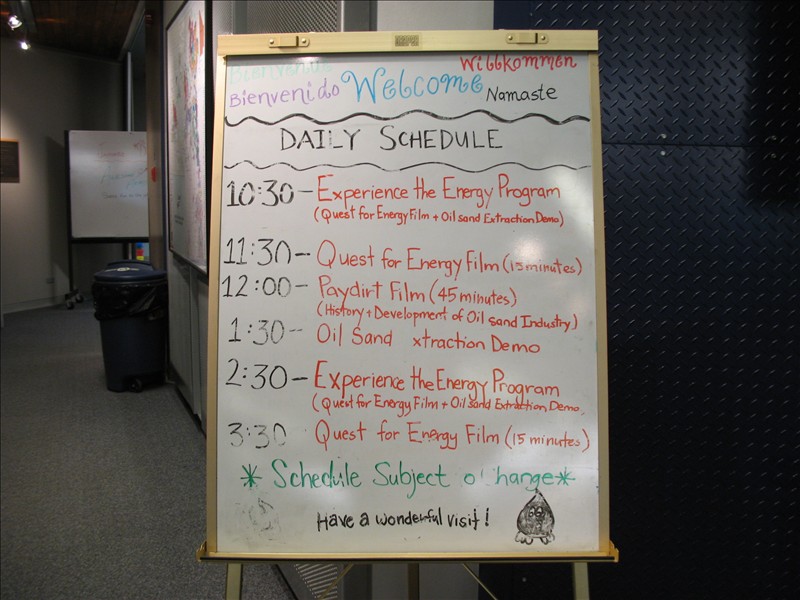 Bienvenue
Willkommen
Bienvenido Welcome Namaste
DAILY SCHEDULE
10:30 - Experience the Energy Program
(Quest for Energy Film + Oil sand Extraction Demo)
11:30 - Quest for Energy Film (15 minutes)
12:00 - Paydirt Film (45 minutes)
(History + Development of Oil sand Industry)
1:30 - Oil Sand xtraction Demo
2:30 - Experience the Energy Program
(Quest for Energy Film + Oil sand Extraction Demo
3:30 Quest for Energy Film (15 minutes)
* Schedule Subject o hange *
Have a wonderful visit!